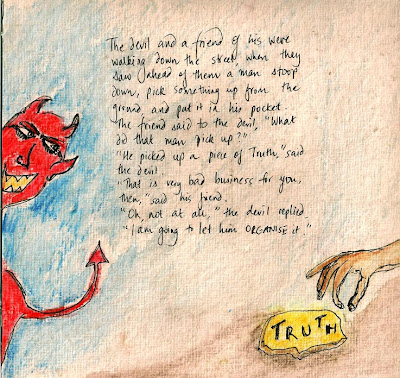 The devil and a friend of his were
walking down the street, when they
saw ahead of them a man stoop
down, pick something up from the
ground, and put it in his pocket.
The friend said to the devil, "What
did that man pick up?"
"He picked up a piece of Truth," said
the devil.
"That is very bad business for you,
then," said his friend.
"Oh, not at all," the devil replied,
"I am going to let him ORGANISE it."
TRUTH